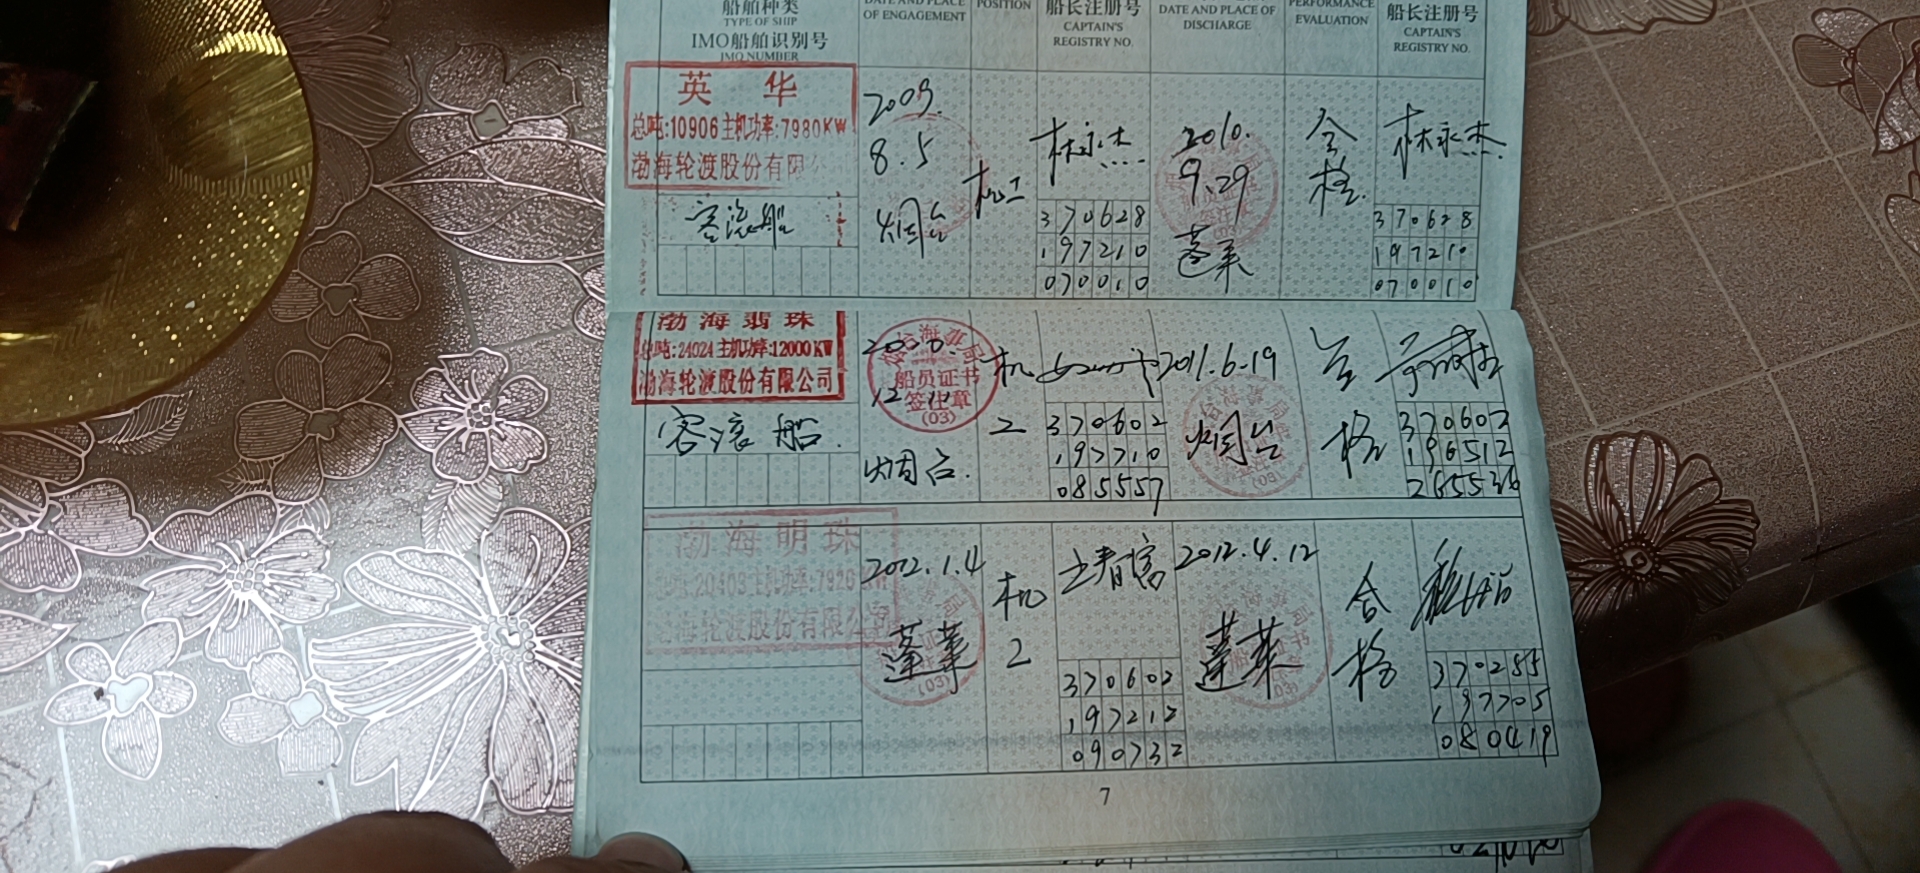 船舶种类
TYPE OF SHIP
IMO船舶识别号
IMO NUMBER
DATE AND PLACE
OF ENGAGEMENT
POSITION
船长注册号
CAPTAIN'S
REGISTRY NO.
DATE AND PLACE OF
DISCHARGE
PERFORMANCE
EVALUATION
船长注册号
CAPTAIN'S
REGISTRY NO.
英 华
总吨:10906 主机功率:7980KW
渤海轮渡股份有限公
客滚船
2009.
8.5
烟台
机工
林永杰
370628
197210
070010
2010.
9.29
蓬莱
合格.
林永杰
370628
197210
070010
渤海翡珠
总吨:24024 主机功率:12000KW
渤海轮渡股份有限公司
客滚船.
2010.
12.11
烟台.
海事局
船员证书
签注章
(03)
机
工
370602
197710
085557
2011.6.19
烟台
合
格
370602
196512
265536
渤海明珠
总吨:20403 主机功率:7920KW
渤海轮渡股份有限公司
2012.1.4
蓬莱
(03)
机
工
王春富
370602
197212
090732
2012.4.12
蓬莱
合
格
370255
197705
080419
7